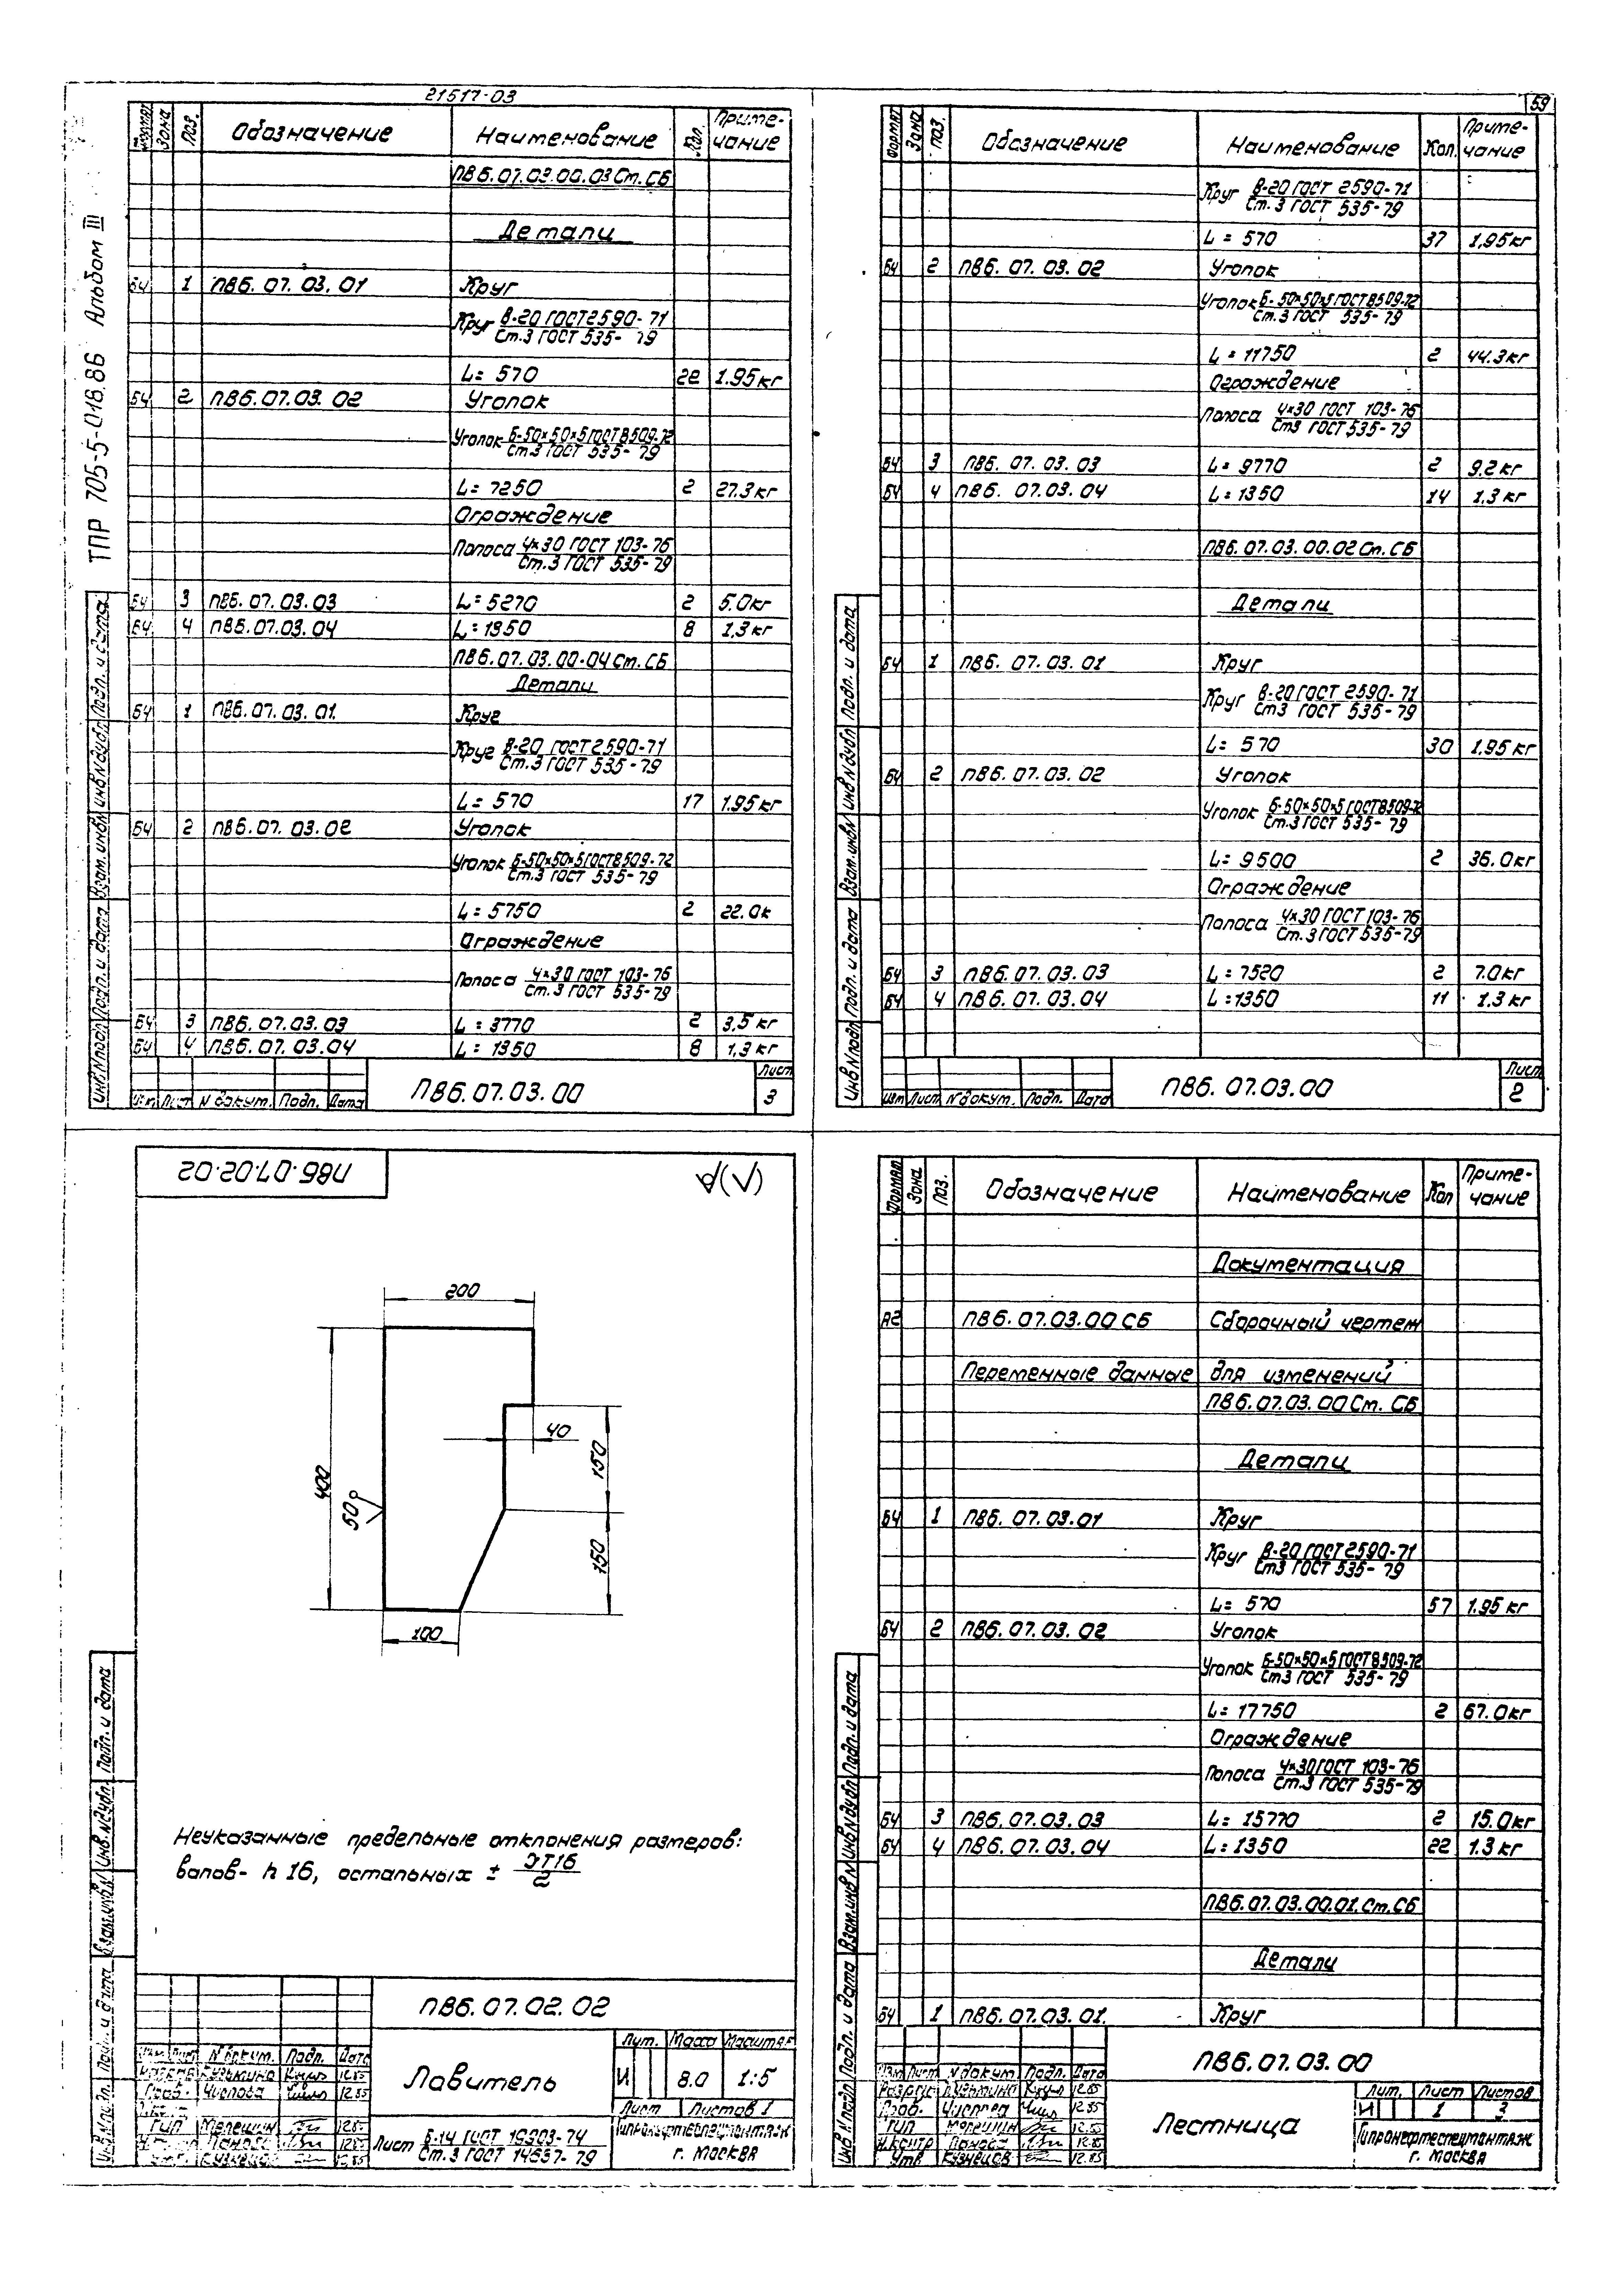 21517-03
59
ТПР 705-5-018.86 Альбом III
Формат Зона Поз. Обозначение Наименование Кол. Приме-чание
ПВ6.07.03.00.03 Ст. СБ
Детали
БЧ 1 ПВ6.07.03.01 Круг
Круг В-20 ГОСТ 2590-71
Ст.3 ГОСТ 535-79
L= 570 22 1.95кг
БЧ 2 ПВ6.07.03.02 Уголок
Уголок Б-50×50×5 ГОСТ 8509-72
Ст.3 ГОСТ 535-79
L= 7250 2 27.3кг
Ограждение
Полоса 4×30 ГОСТ 103-76
Ст.3 ГОСТ 535-79
БЧ 3 ПВ6.07.03.03 L= 5270 2 5.0кг
БЧ 4 ПВ6.07.03.04 L= 1350 8 1.3кг
ПВ6.07.03.00-04 Ст. СБ
Детали
БЧ 1 ПВ6.07.03.01. Круг
Круг В-20 ГОСТ 2590-71
Ст.3 ГОСТ 535-79
L= 570 17 1.95кг
БЧ 2 ПВ6.07.03.02 Уголок
Уголок Б-50×50×5 ГОСТ 8509-72
Ст.3 ГОСТ 535-79
L= 5750 2 22.0к
Ограждение
Полоса 4×30 ГОСТ 103-76
Ст.3 ГОСТ 535-79
БЧ 3 ПВ6.07.03.03 L= 3770 2 3,5 кг
БЧ 4 ПВ6.07.03.04 L= 1350 8 1,3 кг
Изм Лист N докум. Подп. Дата
ПВ6.07.03.00
Лист
3
Инв.N подл. Подп. и дата Взам.инв.N Инв.N дубл. Подп. и дата
Формат Зона Поз. Обозначение Наименование Кол. Приме-чание
Круг В-20 ГОСТ 2590-71
Ст.3 ГОСТ 535-79
L= 570 37 1.95кг
БЧ 2 ПВ6.07.03.02 Уголок
Уголок Б-50×50×5 ГОСТ 8509-72
Ст.3 ГОСТ 535-79
L= 11750 2 44.3кг
Ограждение
Полоса 4×30 ГОСТ 103-76
Ст3 ГОСТ 535-79
БЧ 3 ПВ6.07.03.03 L= 9770 2 9.2кг
БЧ 4 ПВ6.07.03.04 L= 1350 14 1.3кг
ПВ6.07.03.00.02 Ст. СБ
Детали
БЧ 1 ПВ6.07.03.01 Круг
Круг В-20 ГОСТ 2590-71
Ст3 ГОСТ 535-79
L= 570 30 1.95кг
БЧ 2 ПВ6.07.03.02 Уголок
Уголок Б-50×50×5 ГОСТ 8509-72
Ст.3 ГОСТ 535-79
L= 9500 2 36.0кг
Ограждение
Полоса 4×30 ГОСТ 103-76
Ст.3 ГОСТ 535-79
БЧ 3 ПВ6.07.03.03 L= 7520 2 7.0кг
БЧ 4 ПВ6.07.03.04 L= 1350 11 1.3кг
Изм Лист N докум. Подп. Дата
ПВ6.07.03.00
Лист
2
Инв.N подл. Подп. и дата Взам.инв.N Инв.N дубл. Подп. и дата
ПВ6.07.02.02
(√)
200
400
40
150
50
150
100
Неуказанные предельные отклонения размеров:
валов- h 16, остальных ± JT16
2
ПВ6.07.02.02
Изм Лист N докум. Подп. Дата
Разраб Кузьмина 12.85
Пров. Числова 12.85
ГИП Мелешин 12.85
Панова 12.85
Кузнецов 12.85
Ловитель
Лит. Масса Масштаб
И 8.0 1:5
Лист Листов 1
Лист Б-14 ГОСТ 19903-74
Ст.3 ГОСТ 14637-79
Гипронефтеспецмонтаж
г. Москва
Инв.N подл. Подп. и дата Взам.инв.N Инв.N дубл. Подп. и дата
Формат Зона Поз. Обозначение Наименование Кол Приме-чание
Документация
А2 ПВ6.07.03.00 СБ Сборочный чертеж
Переменные данные для изменений
ПВ6.07.03.00 Ст. СБ
Детали
БЧ 1 ПВ6.07.03.01 Круг
Круг В-20 ГОСТ 2590-71
Ст3 ГОСТ 535-79
L= 570 57 1.95кг
БЧ 2 ПВ6.07.03.02 Уголок
Уголок Б-50×50×5 ГОСТ 8509-72
Ст3 ГОСТ 535-79
L= 17750 2 67.0кг
Ограждение
Полоса 4×30 ГОСТ 103-76
Ст.3 ГОСТ 535-79
БЧ 3 ПВ6.07.03.03 L= 15770 2 15.0кг
БЧ 4 ПВ6.07.03.04 L= 1350 22 1.3кг
ПВ6.07.03.00.01. Ст. СБ
Детали
БЧ 1 ПВ6.07.03.01. Круг
ПВ6.07.03.00
Изм Лист N докум Подп. Дата
Разраб Кузьмина 12.85
Пров. Числова 12.85
ГИП Мелешин 12.85
Н.контр Панова 12.85
Утв Кузнецов 12.85
Лестница
Лит. Лист Листов
И 1 3
Гипронефтеспецмонтаж
г. Москва
Инв.N подл. Подп. и дата Взам.инв.N Инв.N дубл. Подп. и дата